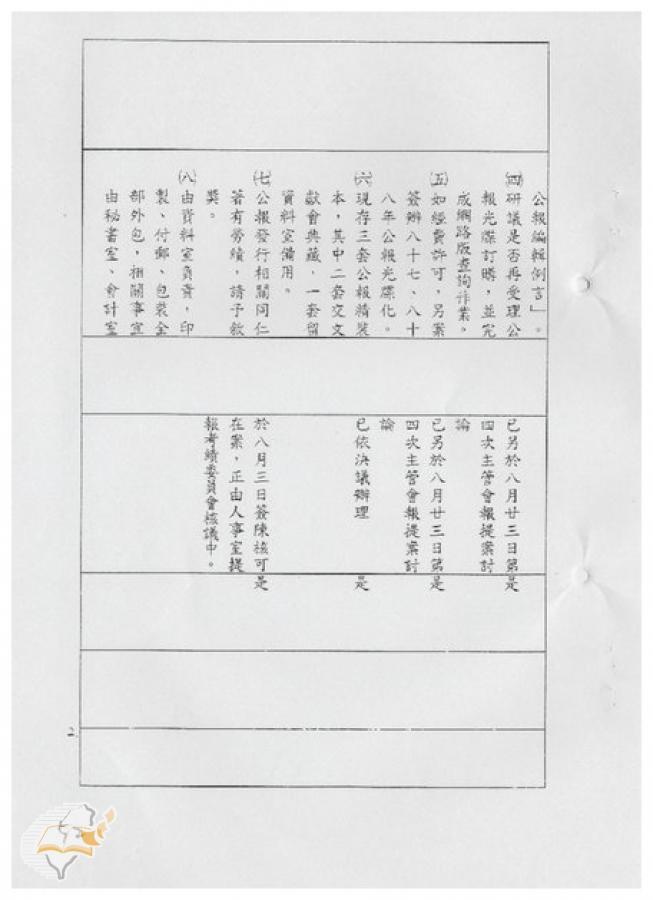 公報編輯例言」。
㈣研議是否再受理公
報光碟訂購，並完
成網路版查詢作業。
㈤如經費許可，另案
簽辦八十七、八十
八年公報光碟化。
㈥現存三套公報精裝
本，其中二套交文
獻會典藏，一套留
資料室備用。
㈦公報發行相關同仁
著有勞績，請予敘
獎。
㈧由資料室負責，印
製、付郵、包裝全
部外包，相關事宜
由秘書室、會計室
已另於八月廿三日第
四次主管會報提案討
論
已另於八月廿三日第
四次主管會報提案討
論
已依決議辦理
於八月三日簽陳核可
在案，正由人事室提
報考績委員會核議中。
是
是
是
是
2